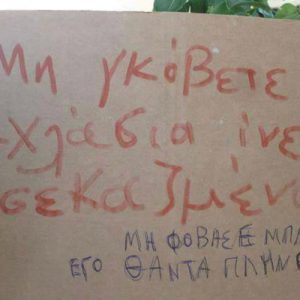 Μη γκόβετε
αχλάσια ίνε
σεκαζμένα
ΜΗ ΦΟΒΑΣΕ
ΕΓΟ ΘΑΝΤΑ ΠΛΗΝΟ